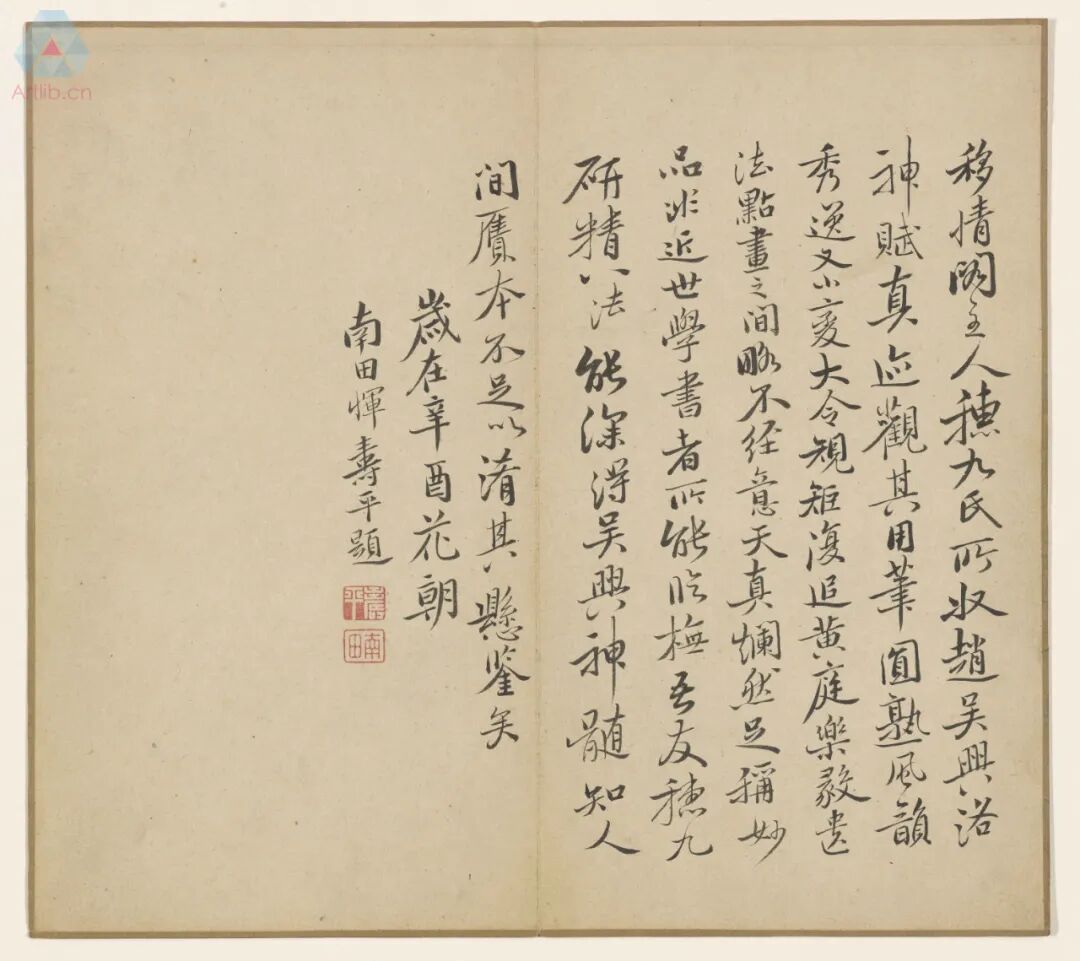 移情閣主人穗九氏所收趙吳興洛
神賦真迹觀其用筆圓熟風韻
秀逸又小變大令規矩復追黃庭樂毅遺
法點畫之間略不經意天真爛然足稱妙
品非近世學書者所能臨橅吾友穗九
研精八法能深得吳興神髓知人
間贋本不足以淆其懸鑒矣
歲在辛酉花朝
南田惲壽平題
壽平
南田
Artlib.cn